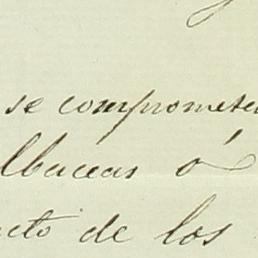 se comprometa
lbaceas ó
acto de los